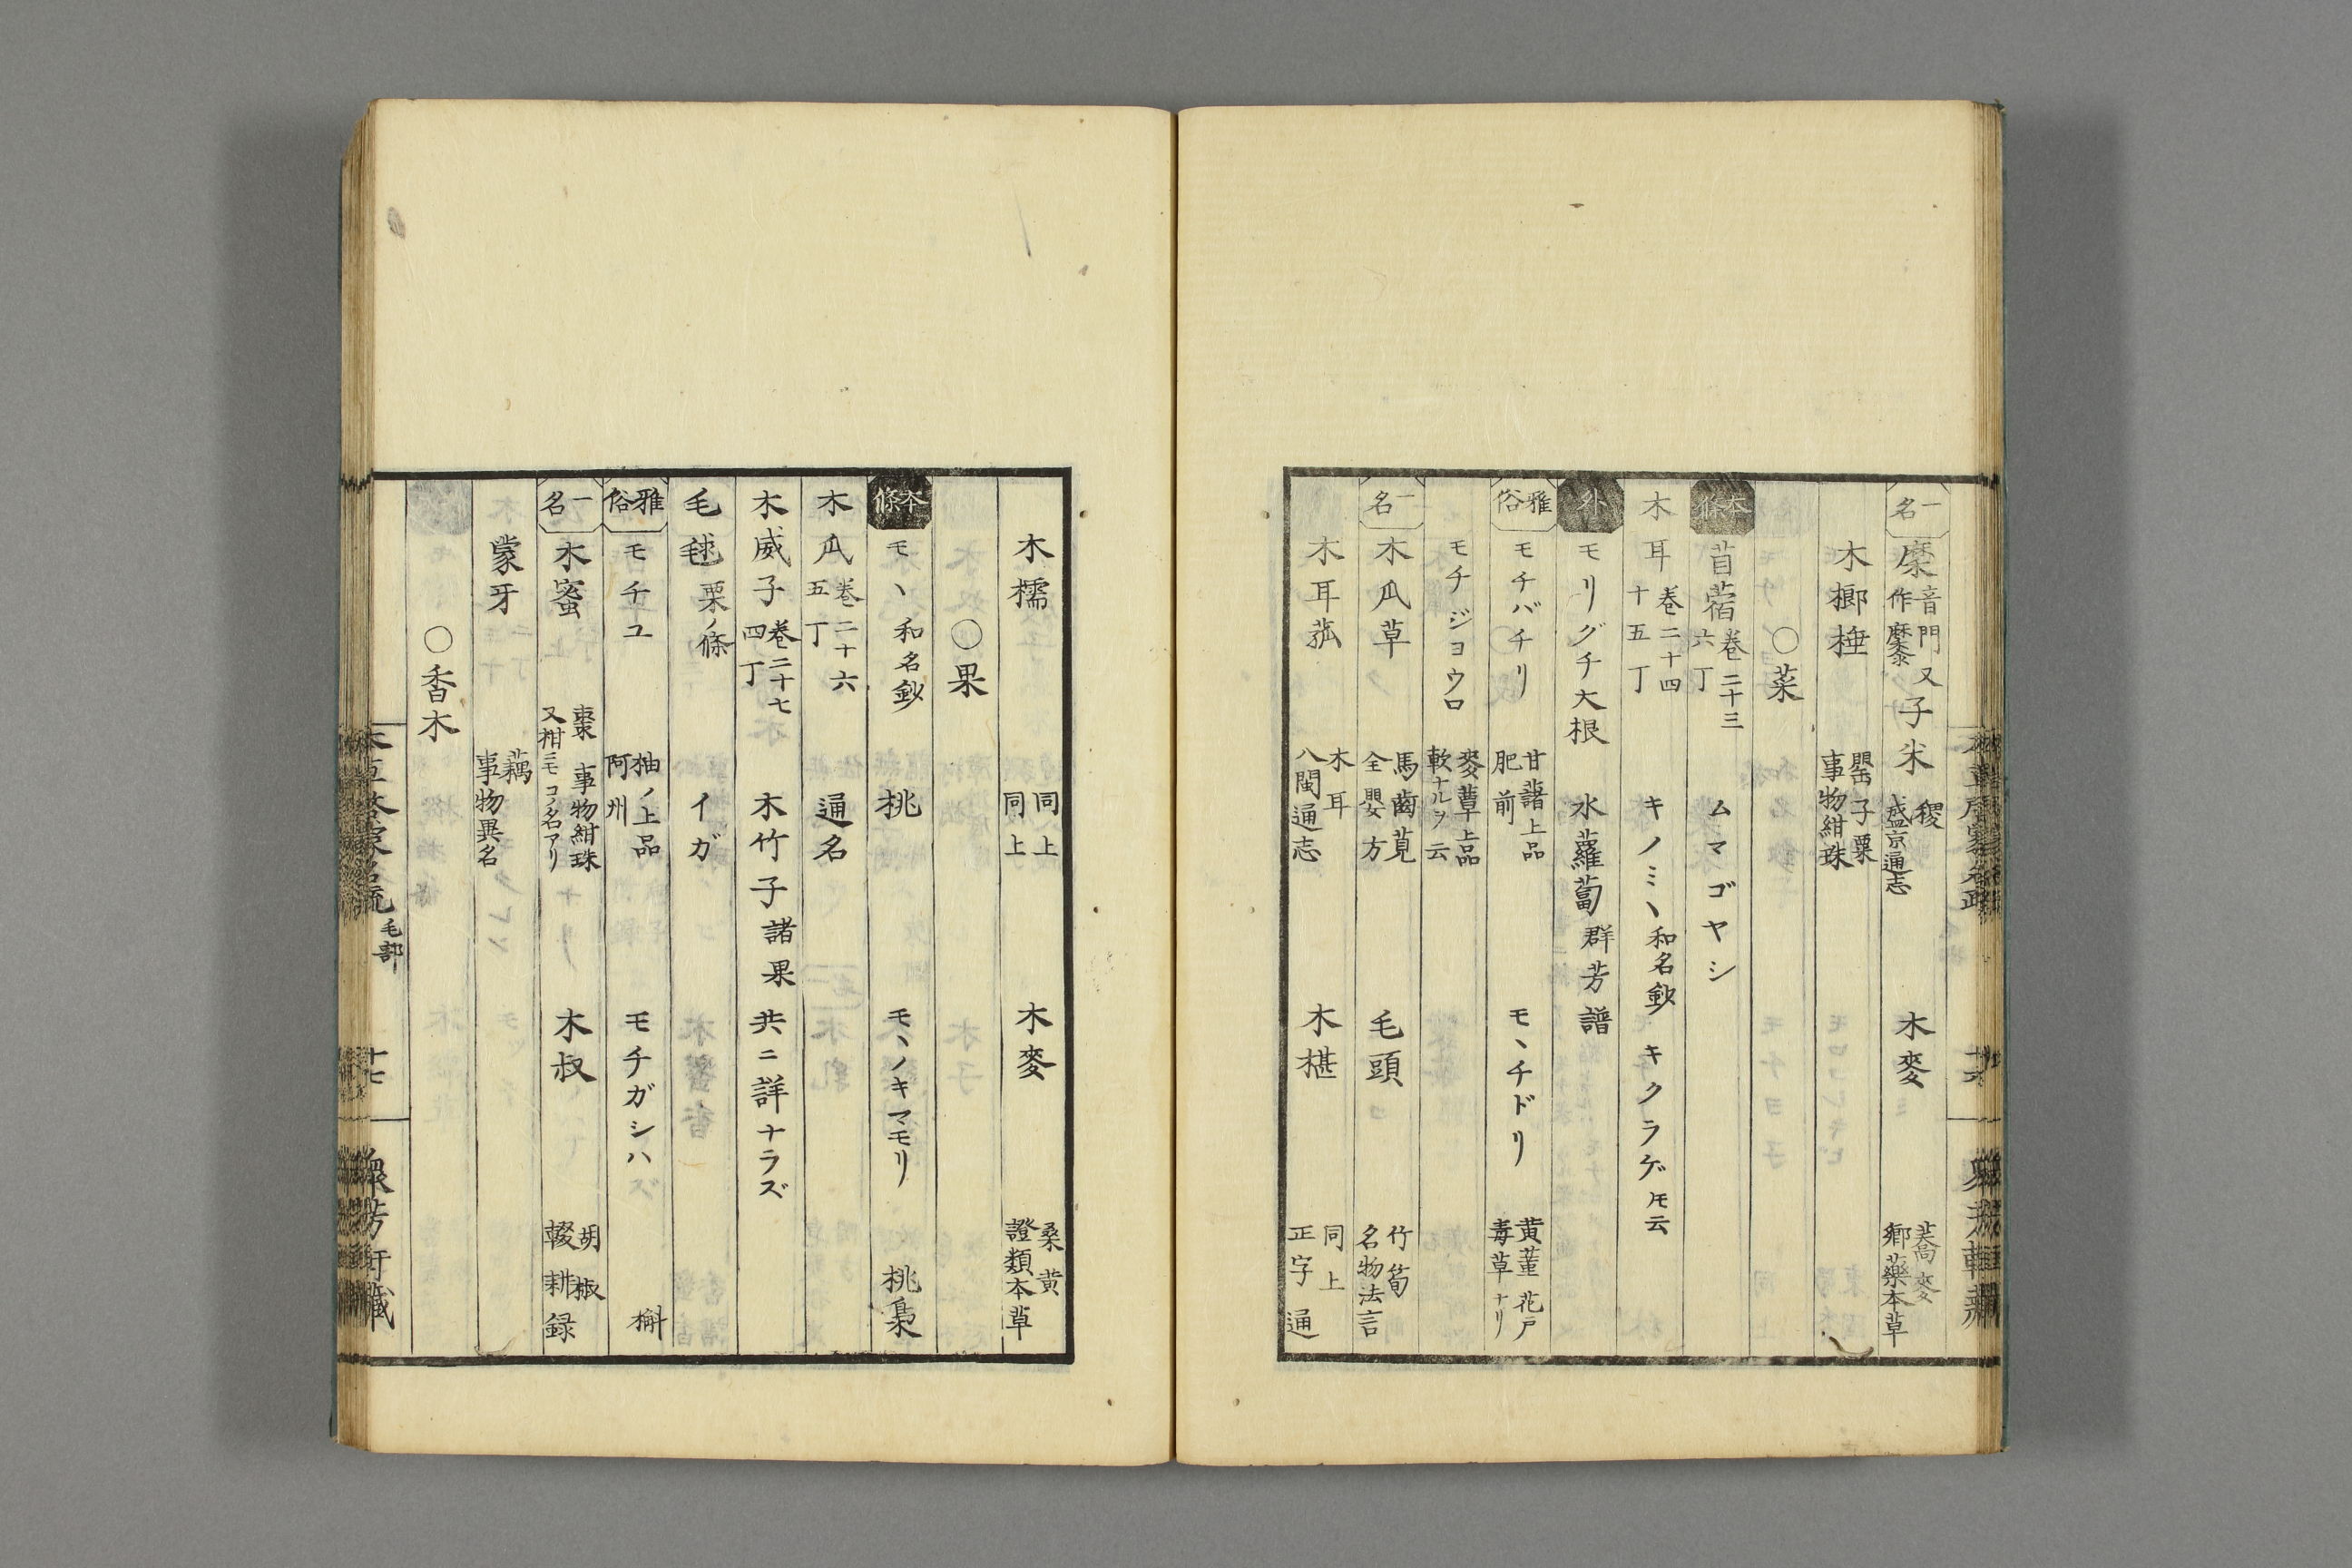 一名 䅒 音門又作虋 子米 稷 盛京通志 木麥 蕎麥 郷藥本草
木榔棰 罌子粟 事物紺珠
〇菜
本條 苜蓿 巻二十三 六丁 ムマゴヤシ
木耳 巻二十四 十五丁 キノミヽ 和名鈔 キクラゲ モ云
外 モリグチ大根 水蘿蔔 群芳譜
雅俗 モチバチリ 甘藷上品 肥前 モヽチドリ 黄菫 花戸 毒草ナリ
モチジヨウロ 麥蕈上品 軟ナルヲ云
一名 木瓜草 馬齒莧 全嬰方 毛頭 竹筍 名物法言
木耳菰 木耳 八閩通志 木椹 同上 正字通
木檽 同上 同上 木麥 桑黄 證類本草
〇果
本條 モヽ 和名鈔 桃 モヽノキマモリ 桃梟
木瓜 巻二十六 五丁 通名
木威子 巻二十七 四丁 木竹子 諸果 共ニ詳ナラズ
毛毬 栗ノ條 イガ
雅俗 モチユ 柚ノ上品 阿州 モチガシハ 槲
一名 木蜜 棗 事物紺珠 又柑ニモコノ名アリ 木叔 胡椒 輟耕録
蒙牙 藕 事物異名
〇香木
毛部 十七 衆芳軒藏